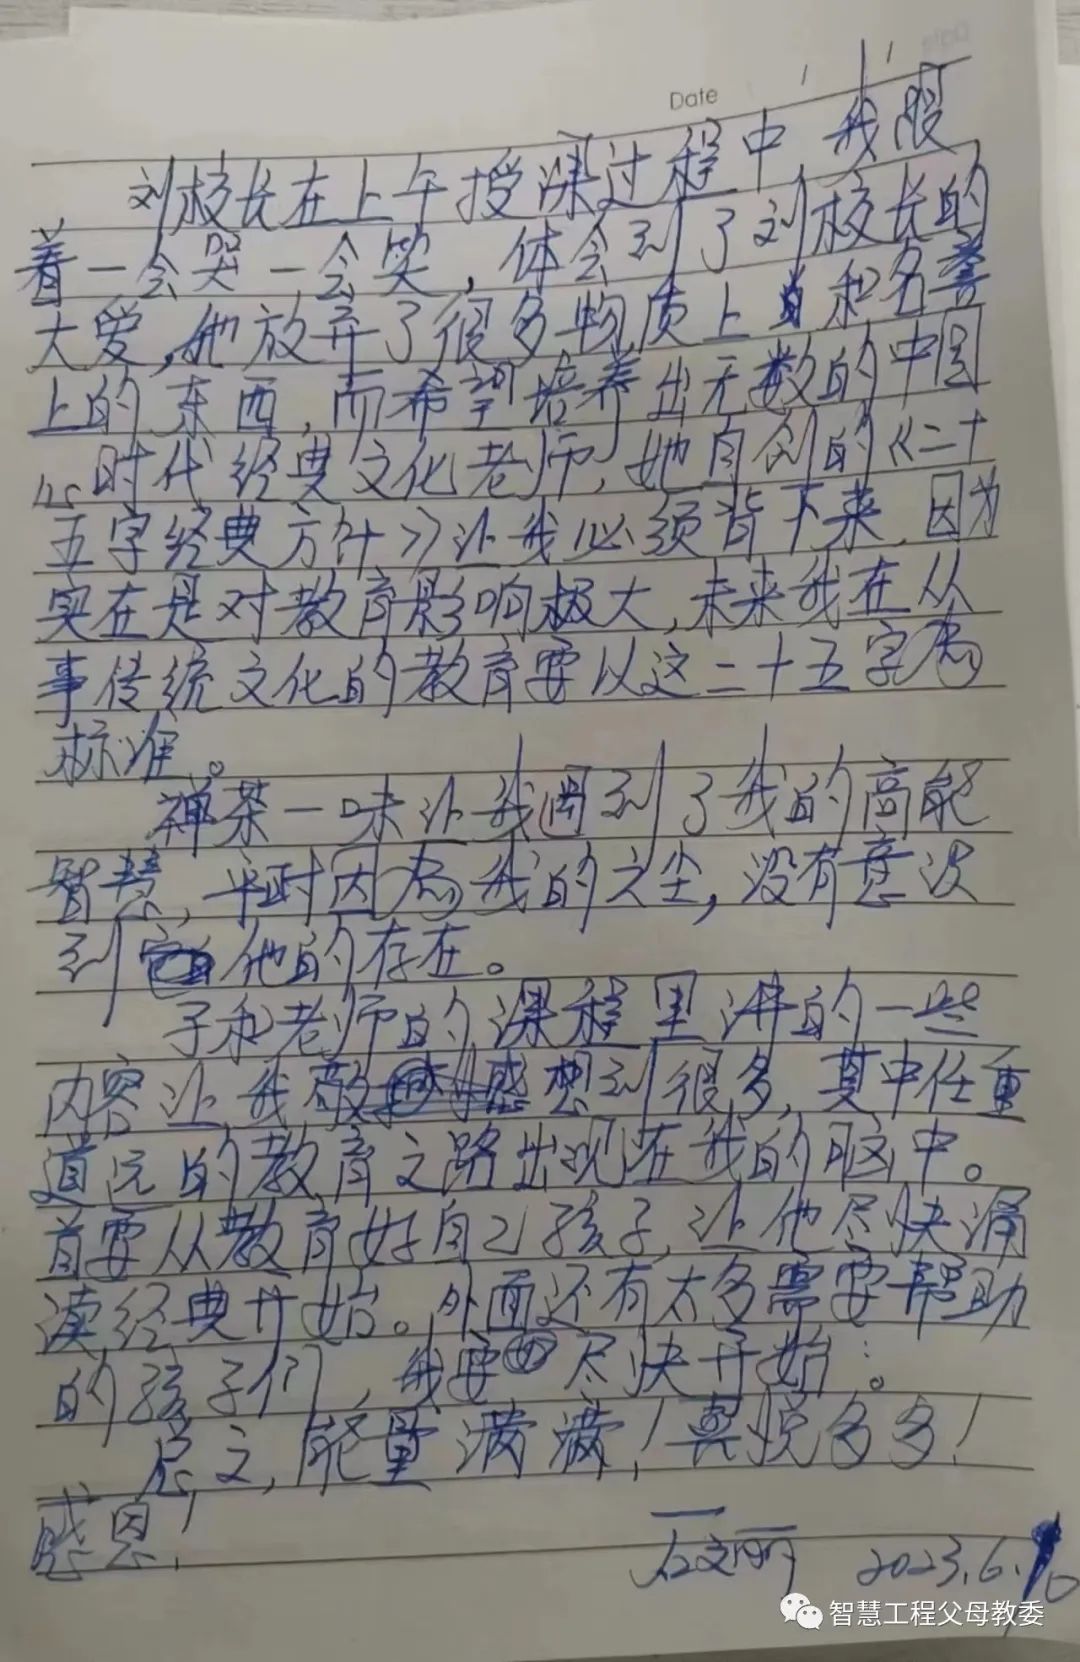 Date
刘校长在上午授课过程中,我跟
着一会哭一会笑,体会到了刘校长的
大爱,她放弃了很多物质上和名誉
上的东西,而希望培养出无数的中国
心时代经典文化老师,她自创的《二十
五字经典方针》让我必须背下来,因为
实在是对教育影响极大,未来我在从
事传统文化的教育要以这二十五字为
标准。
禅茶一味让我回到了我的高能
智慧,平时因为我的之尘,没有意识
到他的存在。
子和老师的课程里讲的一些
内容让我感想到很多,其中任重
道远的教育之路出现在我的脑中。
首要从教育好自己孩子,让他尽快诵
读经典开始。外面还有太多需要帮助
的孩子们,我要尽快开始。
总之,能量满满!喜悦多多!
感恩!
石文丽 2023.6.10
智慧工程父母教委